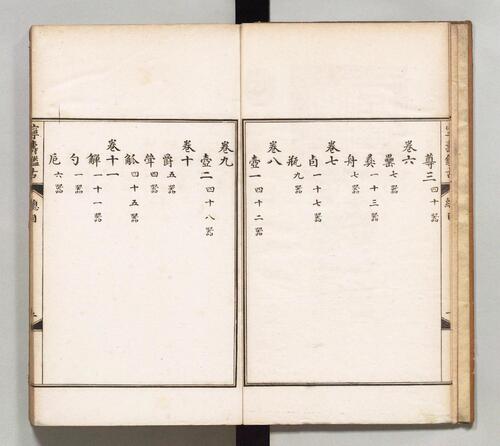 尊三 四十器
卷六
罍 七器
彝 一十三器
舟 七器
卷七
卣 一十七器
瓶 九器
卷八
壺一 四十二器
卷九
壺二 四十八器
卷十
爵 五器
斝 四器
觚 四十五器
卷十一
觶 一十一器
勺 一器
卮 六器
寧壽鑑古
總目